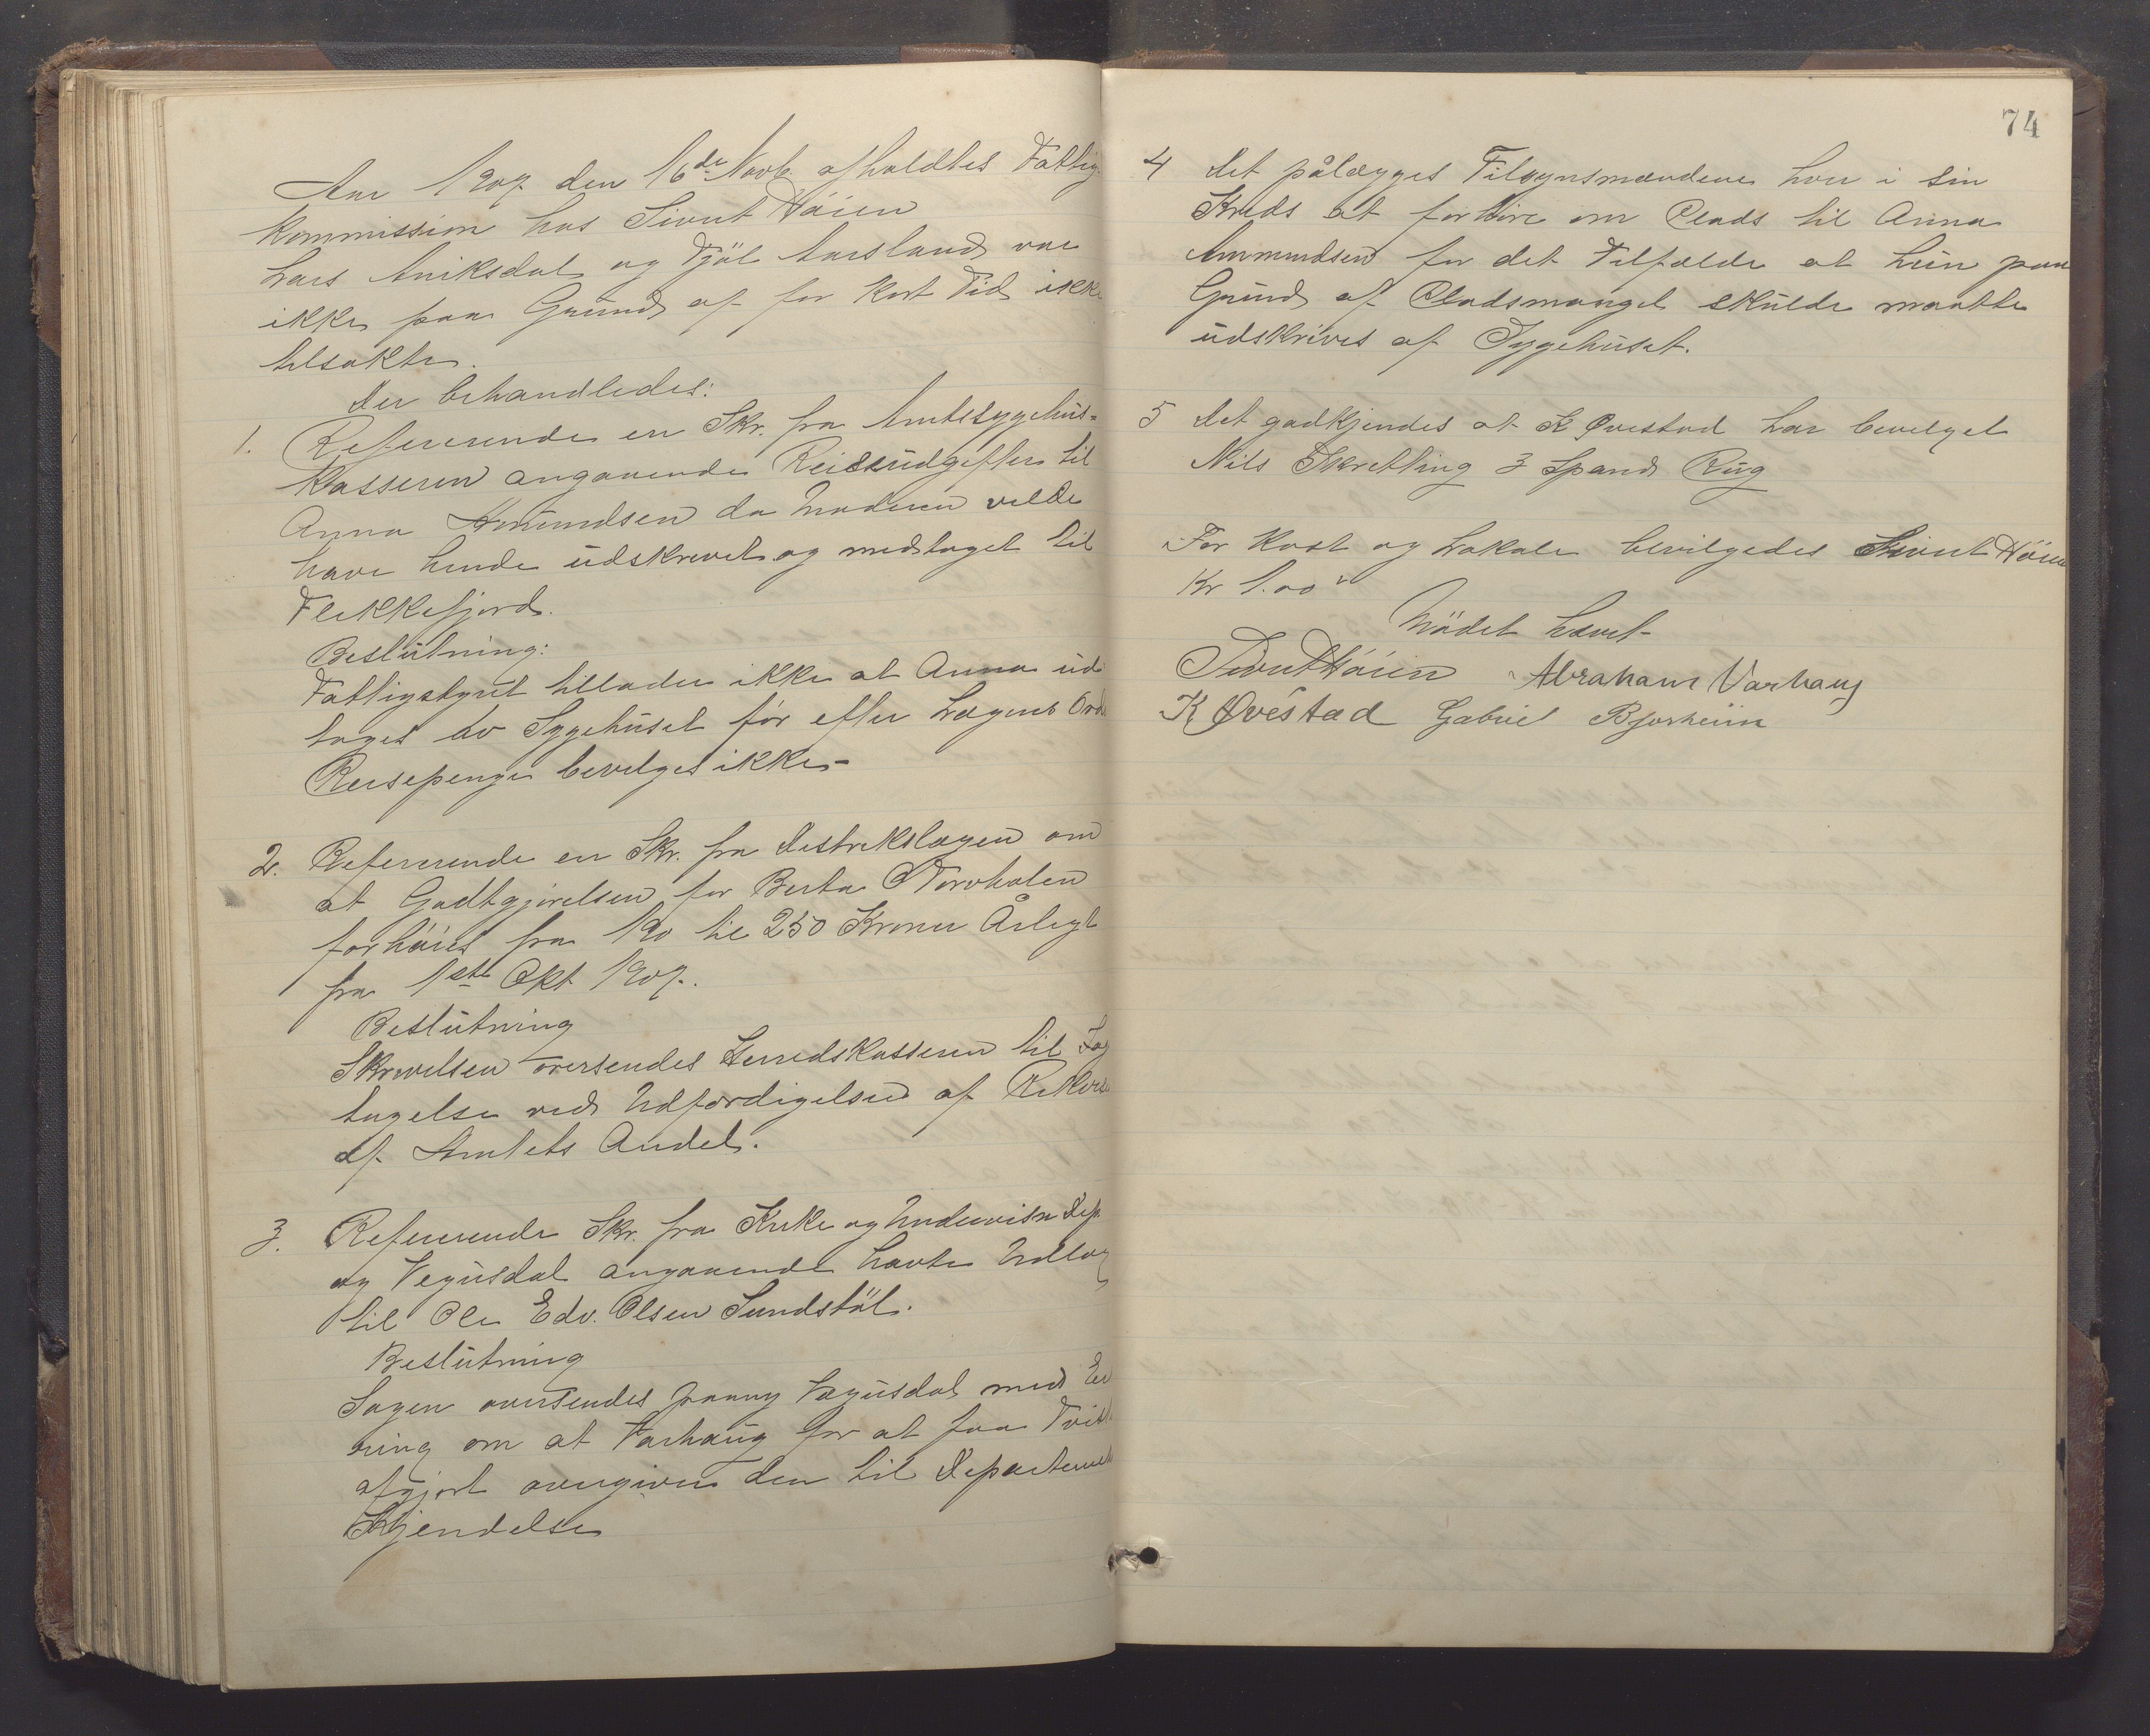 Aar 1907 den 16de Novb. afholdtes Fattig-
kommission hos Sivert Höien
Lars Aniksdal og Tjöl Aarsland var
ikke paa Grund af for Kort Tid ikke
tilsakte.
Der behandledes:
1. Refererende en Skr. fra Amtssygehus-
kasseren angaaende Reiseudgifter til
Anna Amundsen da Moderen vilde
have hende udskrevet og medtaget til
Flekkefjord.
Beslutning:
Fattigstyret tillader ikke at Anna ud-
tages av Sygehuset før efter Lægens Ord
Reisepenge bevilges ikke.
2. Refererende en Skr. fra Distrikslægen om
at Godtgjørelsen for Berta Torvhalen
forhöiet fra 190 til 250 Kroner Årligt
fra 1ste Okt 1907.
Beslutning
Skrivelsen oversendes Herredskasseren til Iag
tagelse ved Udfærdigelsen af Rekvis
af Amtets Andel.
3. Refererende Skr. fra Kirke og Undervisn Dep.
og Vegusdal angaaende havte Udlæg
til Ole Edv. Olsen Sundstöl.
Beslutning
Sagen oversendes paany Vegusdal med Er
ring om at Varhaug for at faa Tvist
afgjort overgiver den til Departementet
Kjendelse
74
4 Det pålægges Tilsynsmændene hver i sin
Kreds at forhøre om Plads til Anna
Ammundsen for det Tilfælde at hun paa
Grund af Pladsmangel skulde maatte
udskrives af Sygehuset.
5 Det godkjendes at K Øvestad har bevilget
Nils Skretting 3 Spand Rug
For Kost og Lokale bevilgedes Sivert Höien
Kr 1.00
Mödet hævet
Sivert Höien Abraham Varhaug
K Øvestad Gabriel Bjorheim